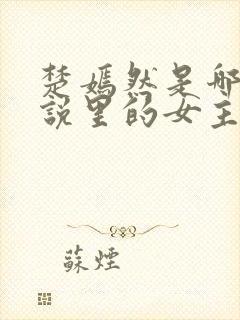 楚嫣然是哪
说里的女主
蘇煙